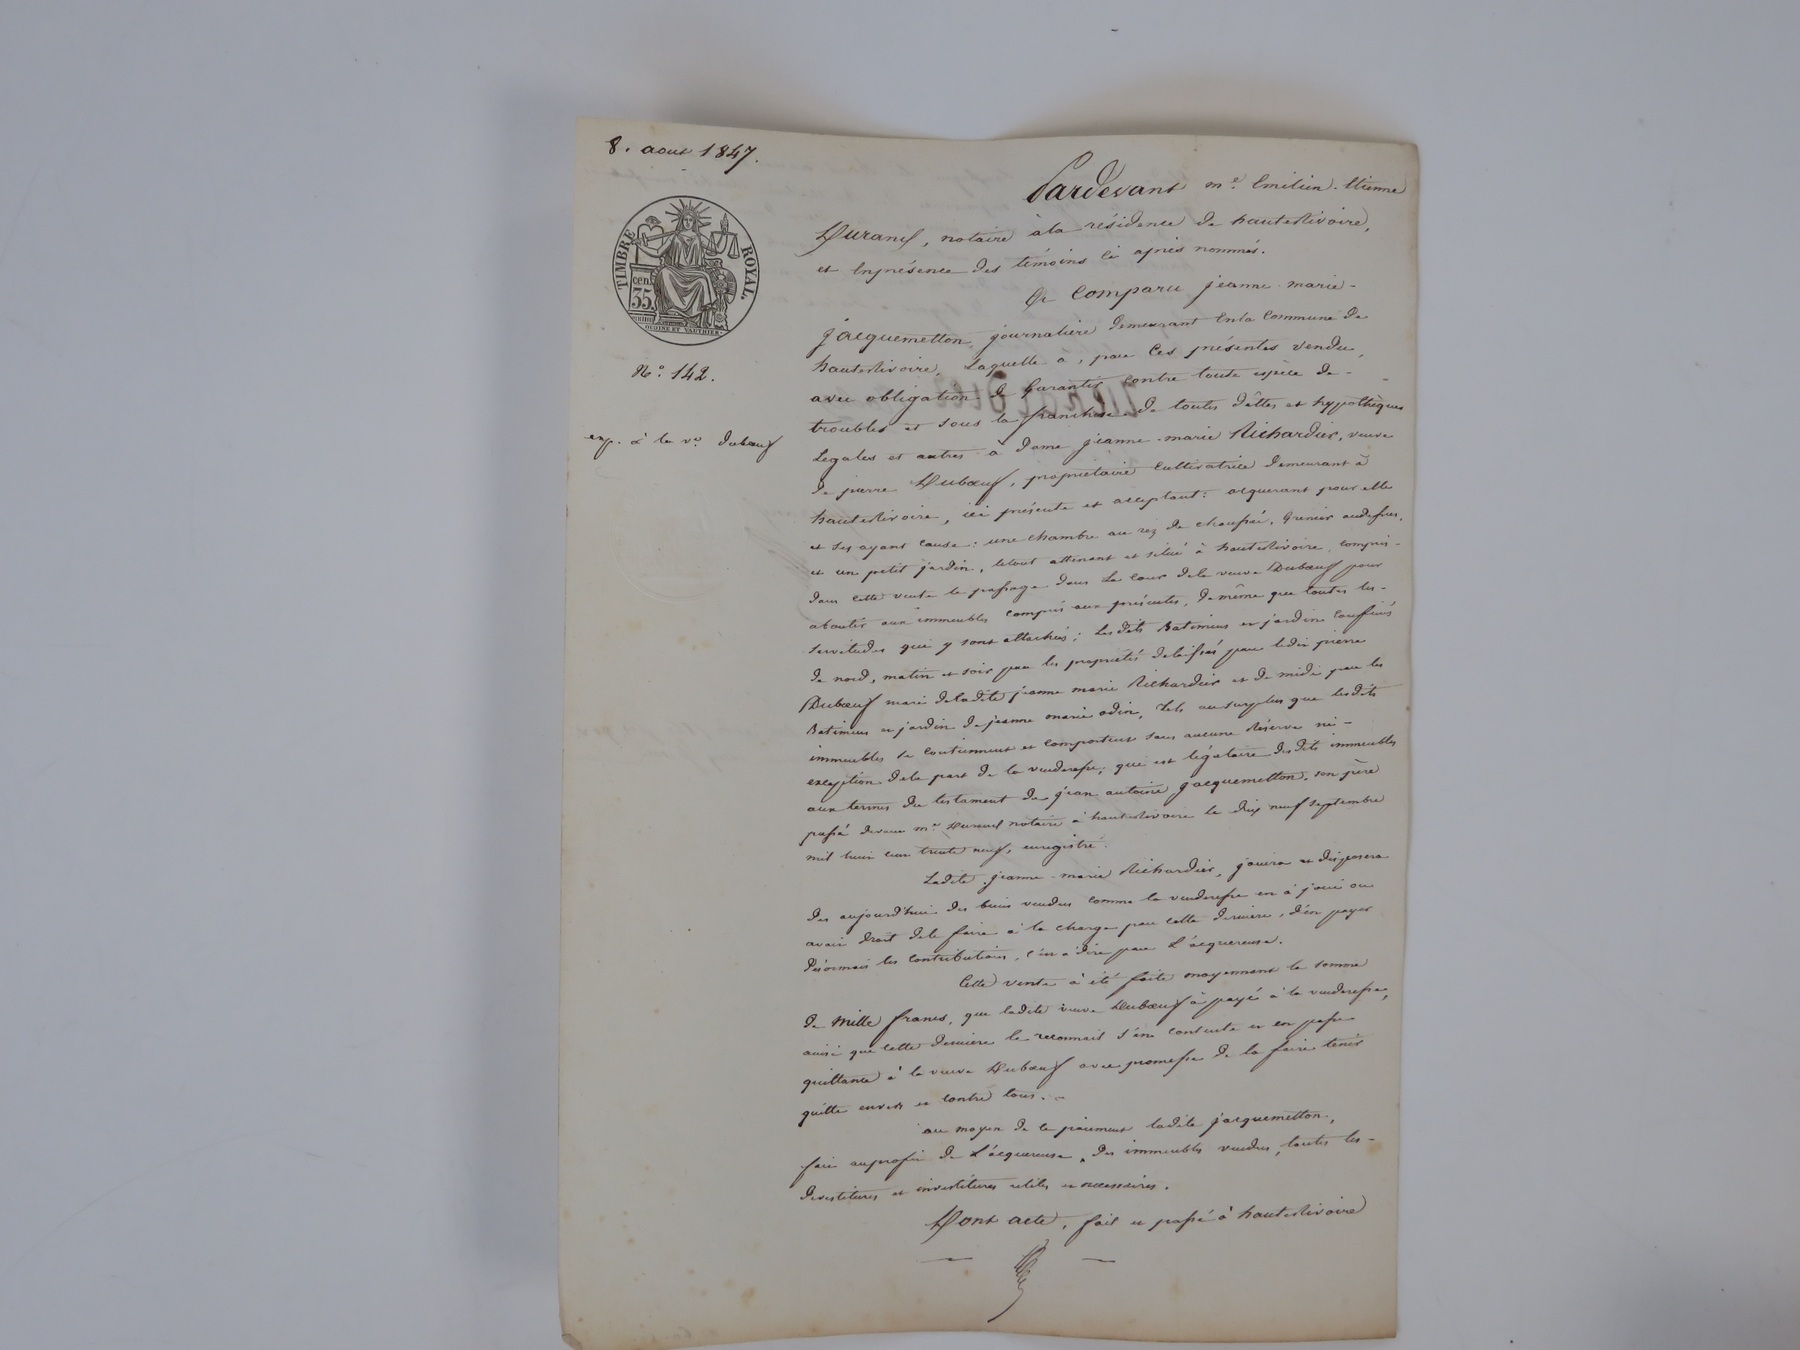 8. aout 1847.
TIMBRE ROYAL.
cen.
35.
OUDINE ET VAUTHIER.
N.° 142.
exp. à la v.e Dubœuf
Pardevant m.e Emilien Etienne
Durand, notaire à la résidence de hauterivoire,
et En présence des témoins ci après nommés.
A Comparu jeanne-marie-
jacquemetton, journalière demeurant Enla Commune de
hauterivoire, Laquelle à, par Ces présentes vendu,
avec obligation de Garantir contre toute espèce de-
troubles et sous la franchise de toutes dêttes et hypothèques
Legales et autres à dame jeanne-marie Richardier, veuve
de pierre Dubœuf, propriétaire Cultivatrice demeurant à
hauterivoire, ici présente et acceptant: acquerant pour elle
et ses ayant cause: une chambre au rez de chaussée, Grenier audessus,
et un petit jardin, letout attenant et situé à hauterivoire, compris-
dans cette vente le passage dans La Cour dela veuve Dubœuf pour
aboutir aux immeubles compris aux présentes, demême que toutes les-
servitudes qui y sont attachées; Lesdits Batimens et jardin confinés
de nord, matin et soir par les proprietés delaissés par ledit pierre
Dubœuf mari deladite jeanne marie Richardier et de midi par les
Batimens et jardin de jeanne marie odin, Tels au surplus que lesdits
immeubles se contiennent et comportent sans aucune Réserve ni-
exception dela part de la venderesse; qui est légataire desdits immeubles
aux termes du testament de jean antoine jacquemetton, son père
passé devant m.e Durand notaire à hauterivoire Le dix neuf septembre
mil huit cent trente neuf, enregistré.
Ladite jeanne-marie Richardier, jouira et disposera
des aujourd'hui des biens vendus comme la venderesse en à joui ou
avait droit dele faire à la charge par cette derniere, d'en payer
désormais les contributions, c'est à dire par L'acquereuse.
Cette vente à été faite moyennant la somme
de Mille francs, que ladite veuve Dubœuf à payé à la venderesse,
ainsi que cette derniere le reconnait s'en contente et en passe
quittance à la veuve Dubœuf avec promesse de la faire tenir
quitte envers et contre tous.
au moyen de ce paiement ladite jacquemetton,
fait auprofit de L'acquereuse, des immeubles vendus, toutes les-
devestitures et investitures utiles et necessaires.
Dont acte, fait et passé à hauterivoire